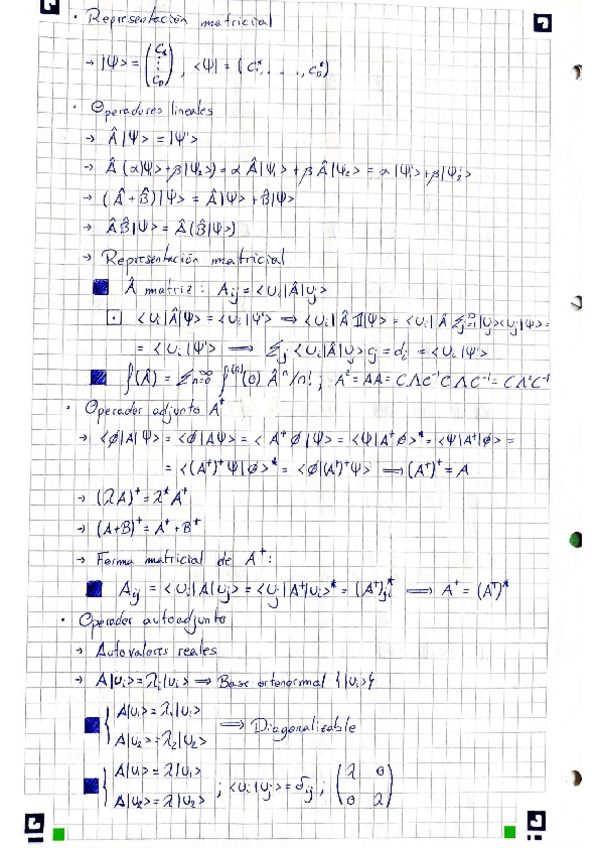 · Representación matricial
→ |Ψ> = (C₁ ⋮ Cₙ), <Ψ| = (C₁*, . . . , Cₙ*)
· Operadores lineales
→ Â|Ψ> = |Ψ'>
→ Â(α|Ψ₁> + β|Ψ₂>) = α Â|Ψ₁> + β Â|Ψ₂> = α|Ψ₁'> + β|Ψ₂'>
→ (Â + B̂)|Ψ> = Â|Ψ> + B̂|Ψ>
→ ÂB̂|Ψ> = Â(B̂|Ψ>)
→ Representación matricial
■ Â matriz: Aᵢⱼ = <uᵢ|Â|uⱼ>
⊡ <uᵢ|Â|Ψ> = <uᵢ|Ψ'> ⟹ <uᵢ|Â 𝟙|Ψ> = <uᵢ|Â Σⱼ₌₁ⁿ|uⱼ><uⱼ|Ψ> =
= <uᵢ|Ψ'> ⟹ Σⱼ <uᵢ|Â|uⱼ> cⱼ = dᵢ = <uᵢ|Ψ'>
■ f(Â) = Σₙ₌₀^∞ f⁽ⁿ⁾(0) Âⁿ/n! ; A² = AA = CΛC⁻¹CΛC⁻¹ = CΛ²C⁻¹
· Operador adjunto A⁺
→ <ø|A|Ψ> = <ø|AΨ> = <A⁺ø|Ψ> = <Ψ|A⁺ø>* = <Ψ|A⁺|ø>* =
= <(A⁺)⁺Ψ|ø>* = <ø|(A⁺)⁺Ψ> ⟹ (A⁺)⁺ = A
→ (λA)⁺ = λ*A⁺
→ (A+B)⁺ = A⁺ + B⁺
→ Forma matricial de A⁺:
■ Aᵢⱼ = <uᵢ|A|uⱼ> = <uⱼ|A⁺|uᵢ>* = (A⁺)ⱼᵢ* ⟹ A⁺ = (Aᵀ)*
· Operador autoadjunto
→ Autovalores reales
→ A|uᵢ> = λᵢ|uᵢ> ⟹ Base ortonormal {|uᵢ>}
■ { A|u₁> = λ₁|u₁>
A|u₂> = λ₂|u₂> ⟹ Diagonalizable
■ { A|u₁> = λ|u₁>
A|u₂> = λ|u₂> ; <uᵢ|uⱼ> = δᵢⱼ ; (λ 0 / 0 λ)